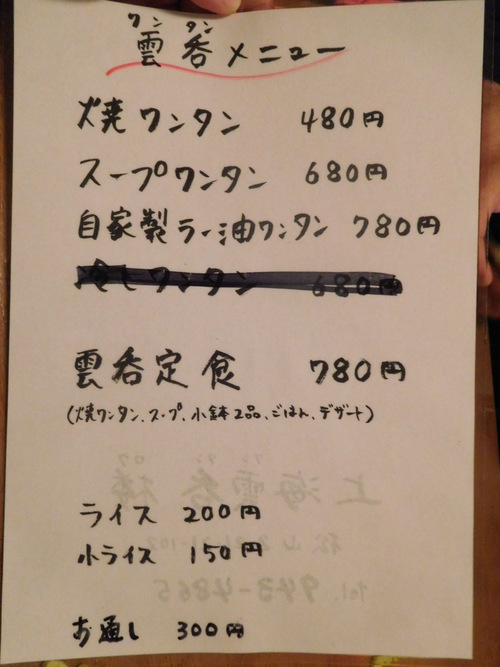 ワン タン
雲呑メニュー
焼ワンタン 480円
スープワンタン 680円
自家製ラー油ワンタン 780円
冷しワンタン 680円
雲呑定食 780円
(焼ワンタン、スープ、小鉢2品、ごはん、デザート)
ロウ ン ワ
上海雲呑楼
松山2-
Tel. 943-4865
ライス 200円
小ライス 150円
お通し 300円